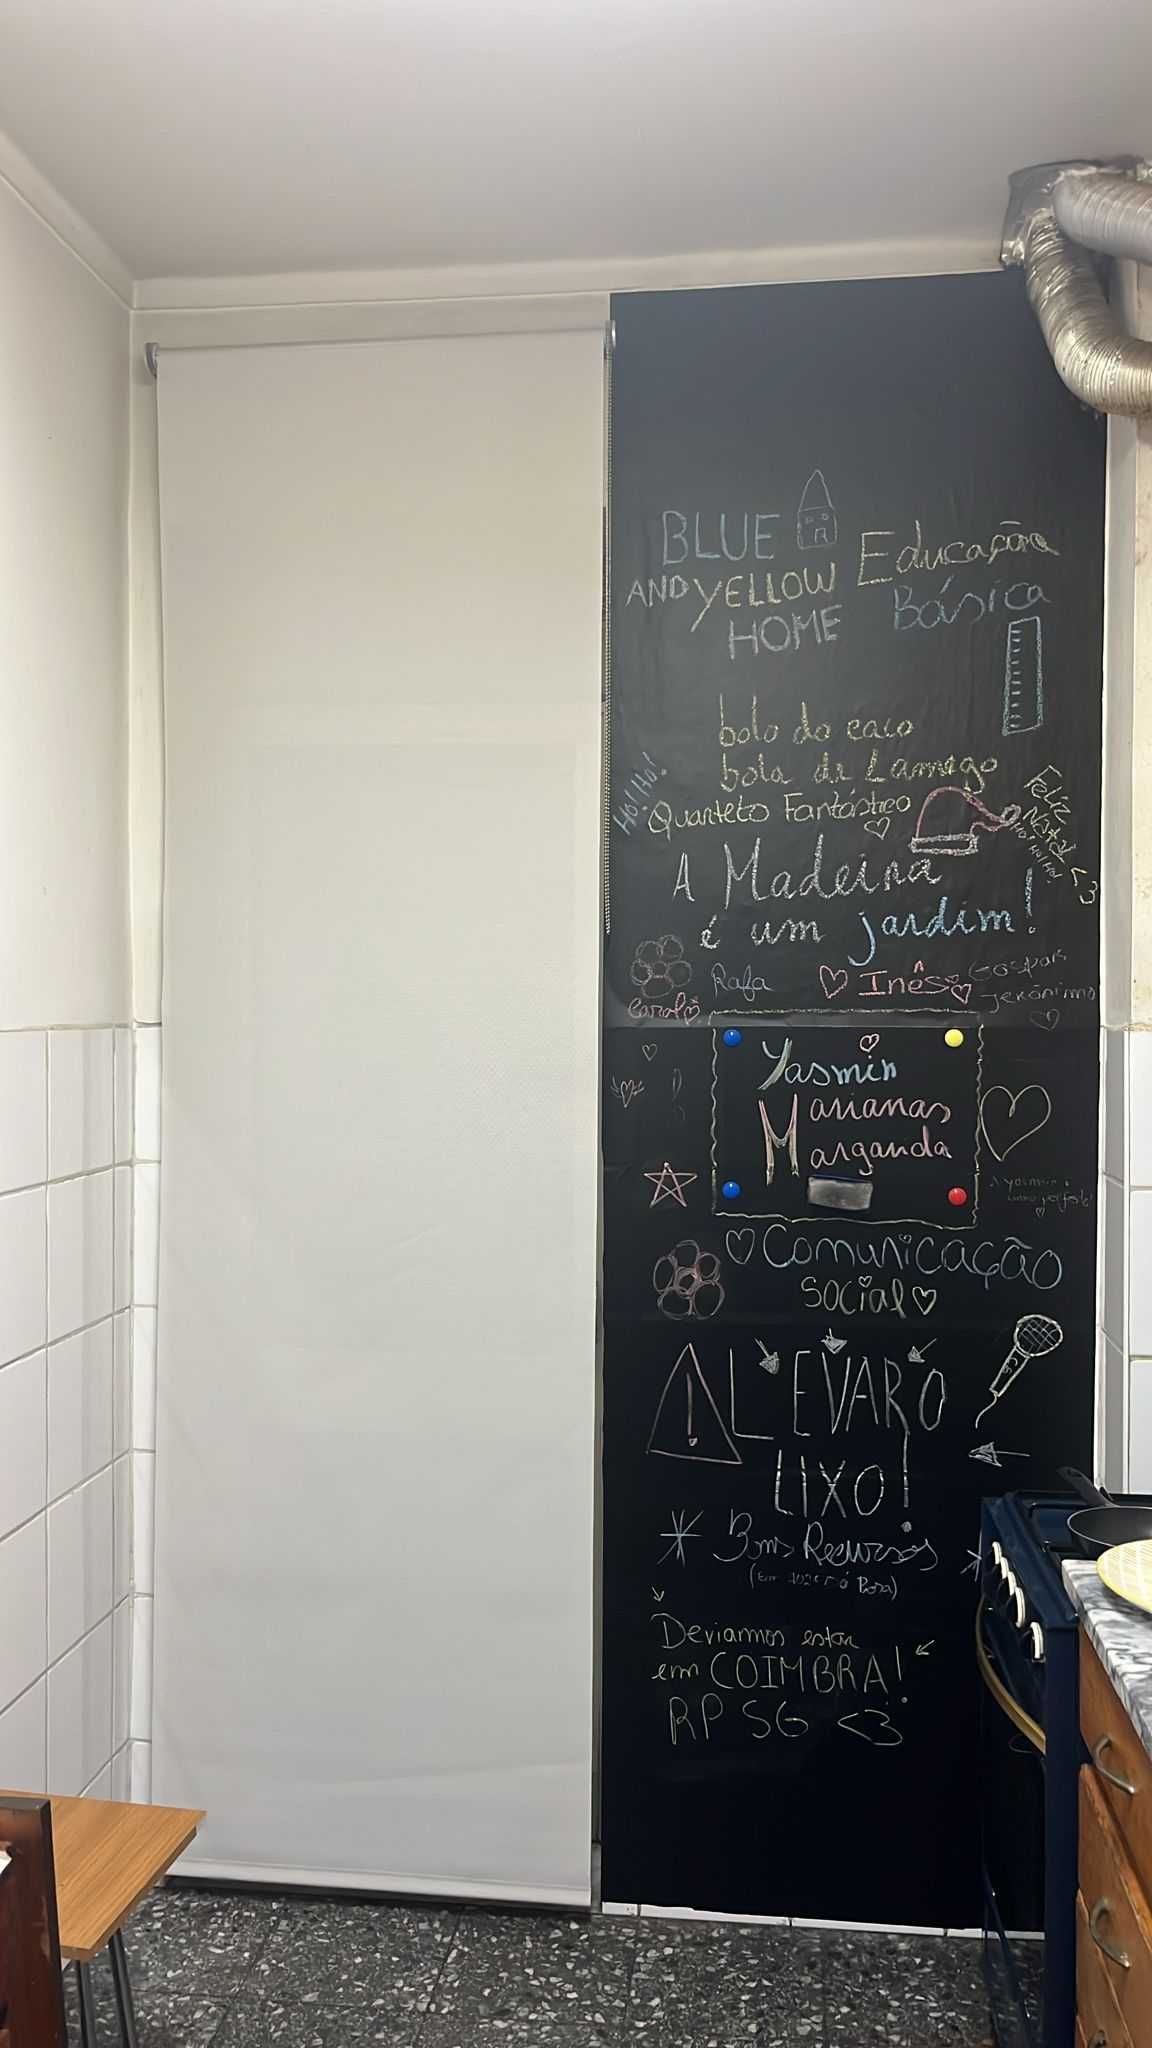 BLUE
AND YELLOW
HOME
Educação
Básica
bolo do caco
bola de Lamego
Ho! Ho!
Quarteto Fantástico
Feliz
Natal <3
Ho! Ho! Ho!
A Madeira
é um jardim!
Carol
Rafa
Inês
Gaspar
Jerónimo
Yasmin
Marianas
Margarida
A Yasmin é
uma
Comunicação
social
L EVAR O
LIXO!
Bons Recursos
(Em
Deviamos estar
em COIMBRA!
RP SG <3